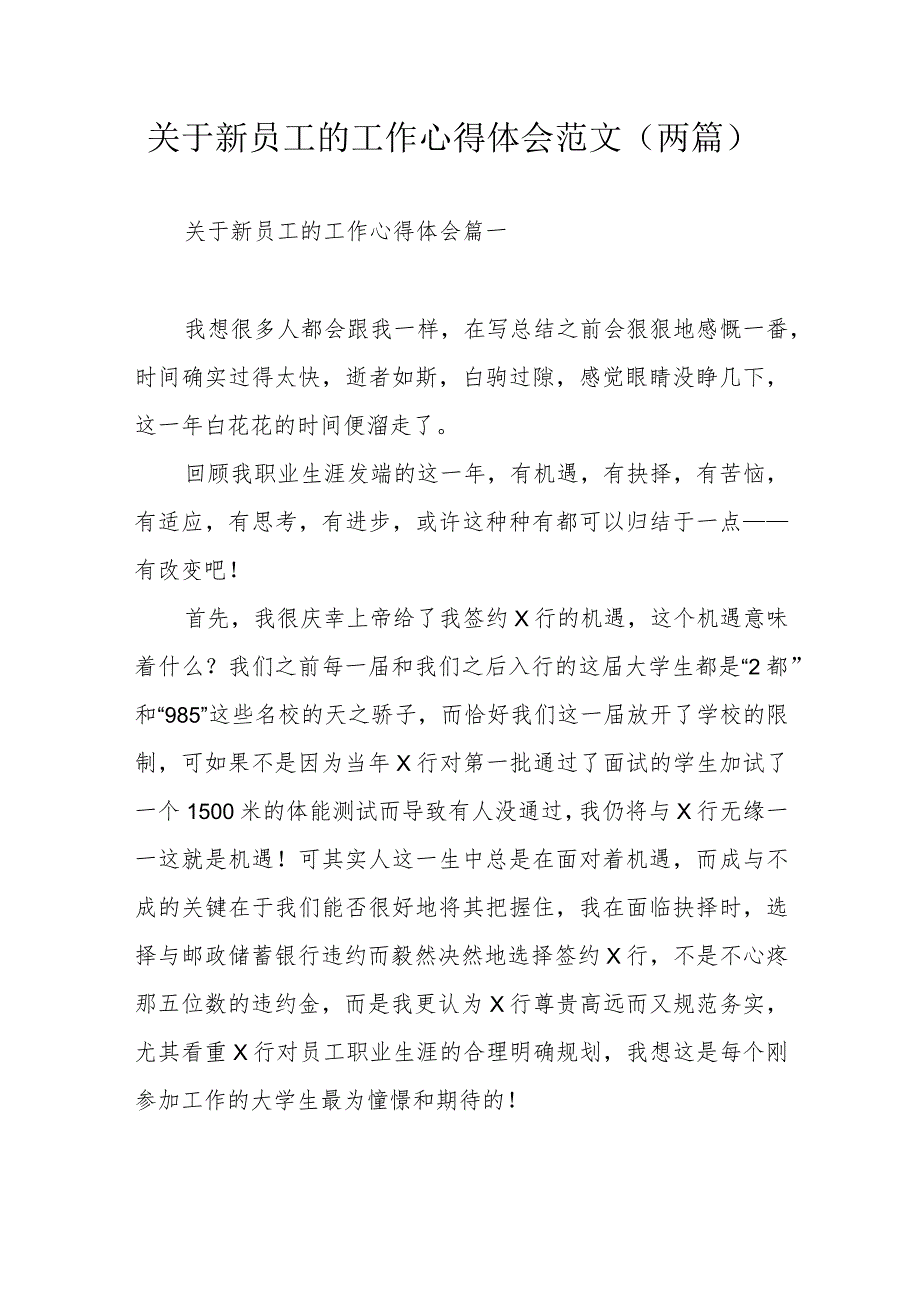 关于新员工的工作心得体会范文（两篇）
关于新员工的工作心得体会篇一
我想很多人都会跟我一样，在写总结之前会狠狠地感慨一番，
时间确实过得太快，逝者如斯，白驹过隙，感觉眼睛没睁几下，
这一年白花花的时间便溜走了。
回顾我职业生涯发端的这一年，有机遇，有抉择，有苦恼，
有适应，有思考，有进步，或许这种种有都可以归结于一点——
有改变吧！
首先，我很庆幸上帝给了我签约X行的机遇，这个机遇意味
着什么？我们之前每一届和我们之后入行的这届大学生都是“2都”
和“985”这些名校的天之骄子，而恰好我们这一届放开了学校的限
制，可如果不是因为当年X行对第一批通过了面试的学生加试了
一个1500米的体能测试而导致有人没通过，我仍将与X行无缘一
一这就是机遇！可其实人这一生中总是在面对着机遇，而成与不
成的关键在于我们能否很好地将其把握住，我在面临抉择时，选
择与邮政储蓄银行违约而毅然决然地选择签约X行，不是不心疼
那五位数的违约金，而是我更认为X行尊贵高远而又规范务实，
尤其看重X行对员工职业生涯的合理明确规划，我想这是每个刚
参加工作的大学生最为憧憬和期待的！